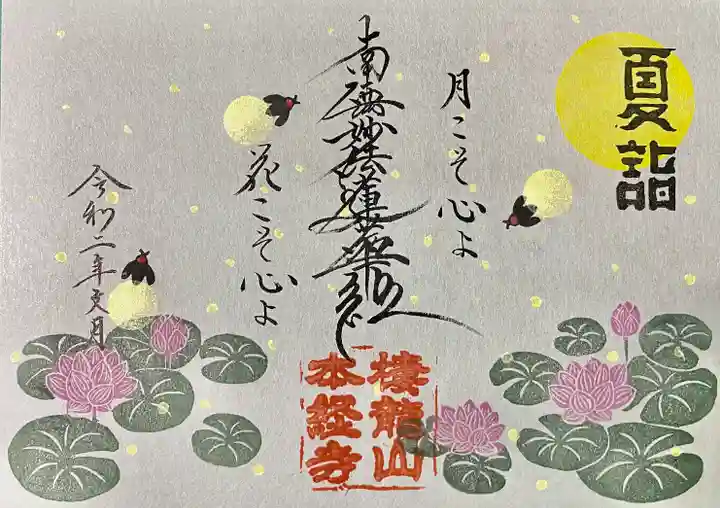 夏詣
月こそ心よ
南無妙法蓮華経
花こそ心よ
令和二年文月
棲龍山
本経寺